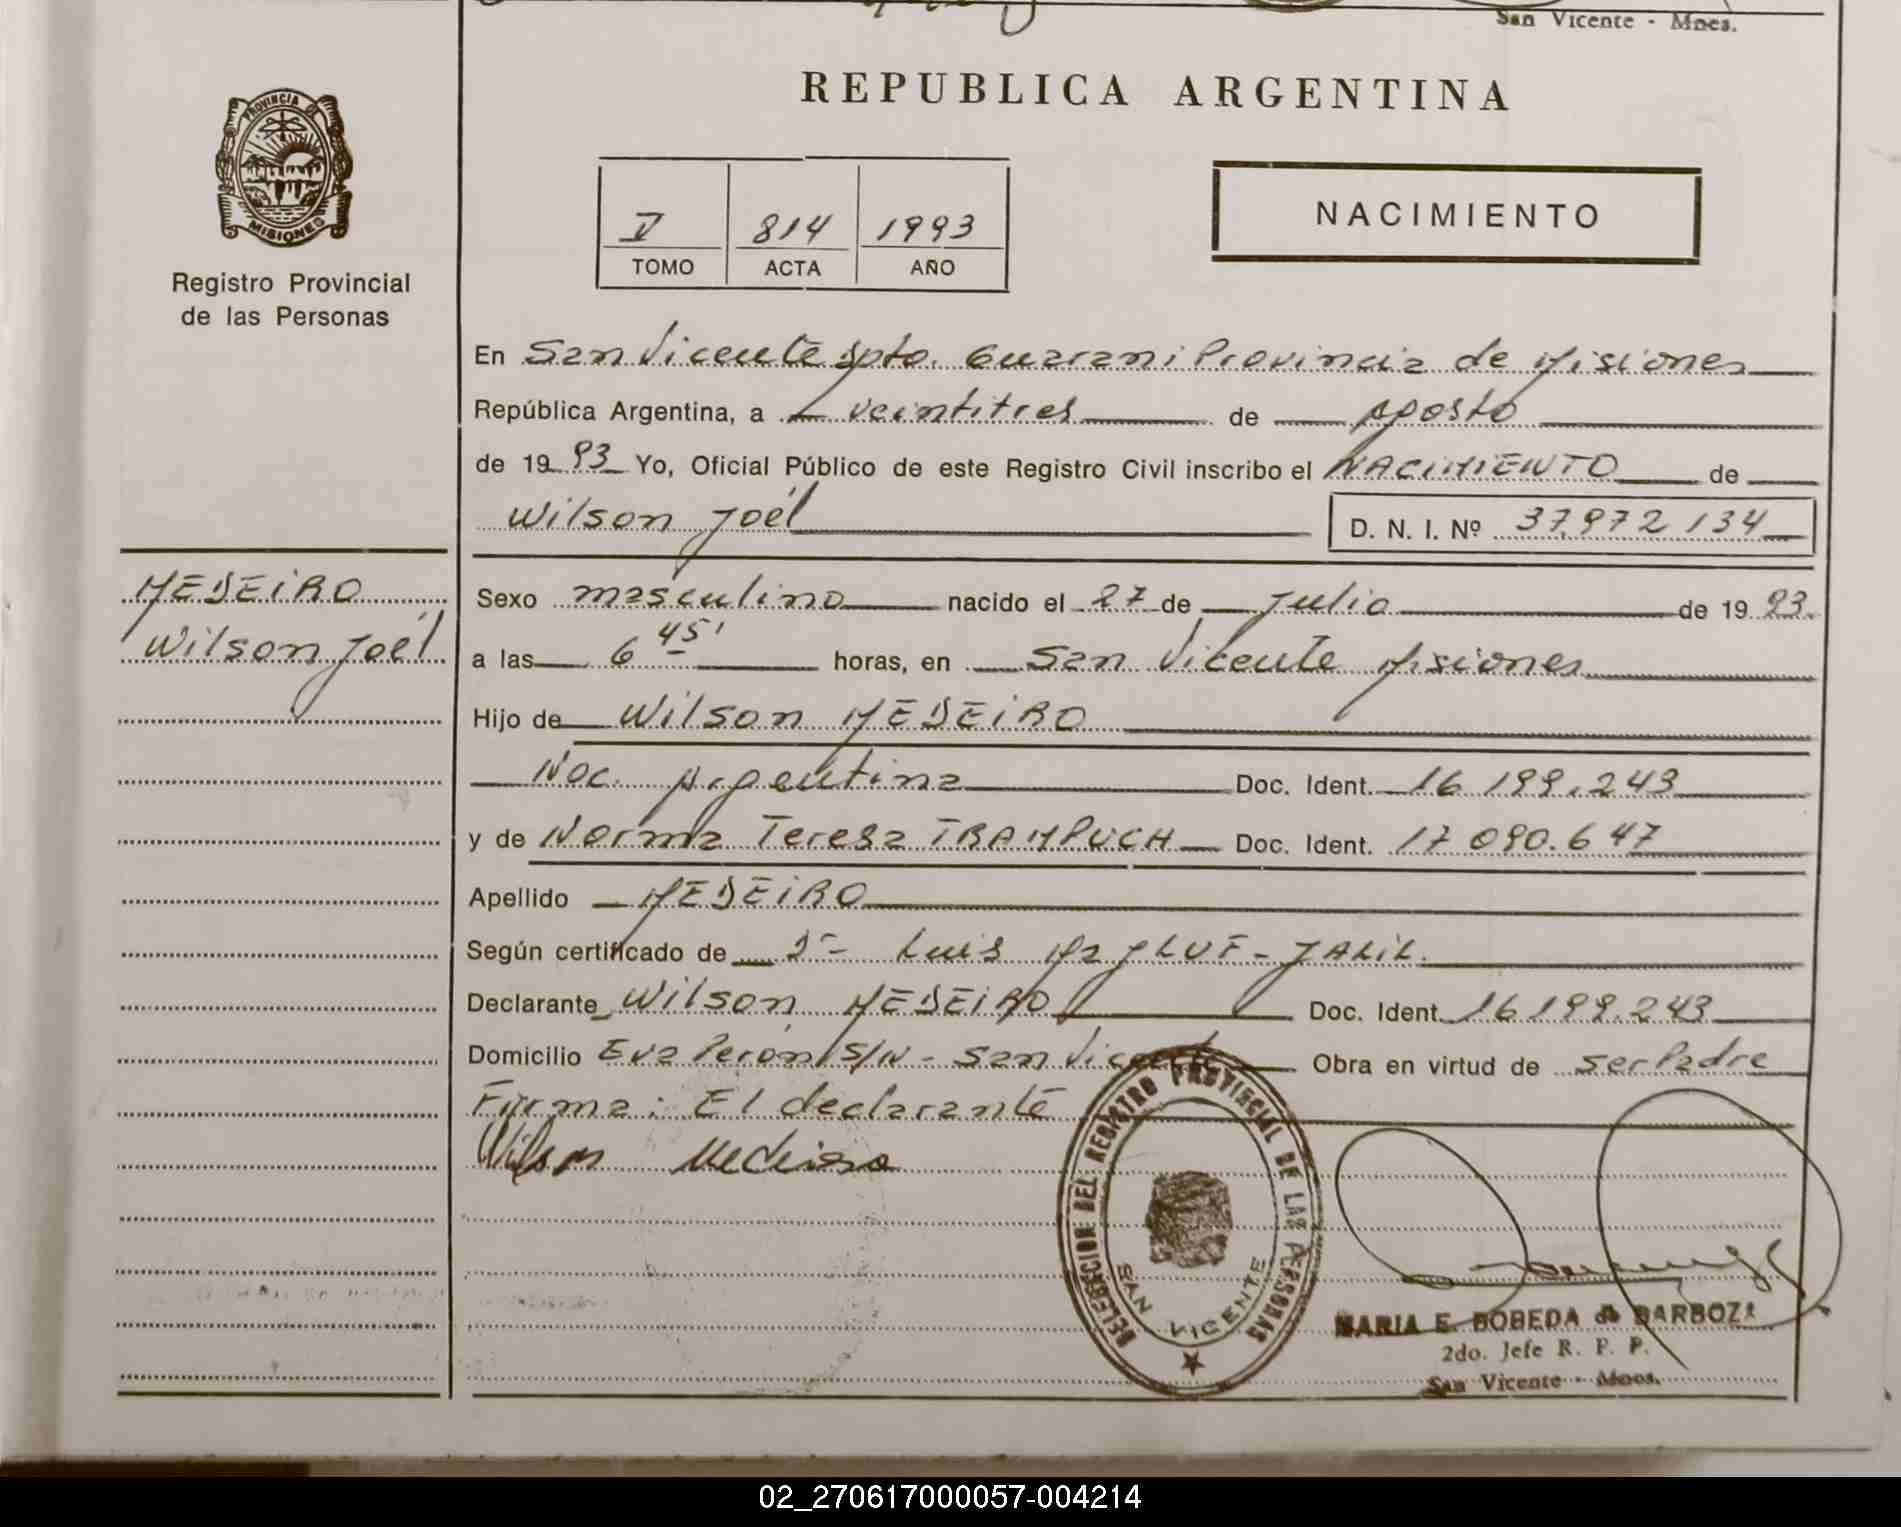 San Vicente - Mnes.
REPUBLICA ARGENTINA
PROVINCIA D
MISIONES
Registro Provincial
de las Personas
V 814 1993
TOMO ACTA AÑO
NACIMIENTO
En San Vicente Dpto. Guarani Provincia de Misiones
República Argentina, a veintitres de Agosto
de 1993 Yo, Oficial Público de este Registro Civil inscribo el NACIMIENTO de
Wilson Joél D. N. I. Nº 37,972 134
MEDEIRO
Wilson Joél
Sexo masculino nacido el 27 de Julio de 1993.
a las 6 45' horas, en San Vicente Misiones
Hijo de Wilson MEDEIRO
Nac. Argentina Doc. Ident. 16 199.243
y de Norma Teresa TRAMPUCH Doc. Ident. 17 090.647
Apellido MEDEIRO
Según certificado de Dr Luis MaJLUF - JALIL.
Declarante Wilson MEDEIRO Doc. Ident. 16 199.243
Domicilio Eva Perón S/N - San Vicente Obra en virtud de ser Padre
Firma: El declarante
Wilson Medeiro
DELEGACION DEL REGISTRO PROVINCIAL DE LAS PERSONAS
SAN VICENTE
MARIA E. BOBEDA de BARBOZA
2do. Jefe R. P. P.
San Vicente - Mnes.
02_270617000057-004214